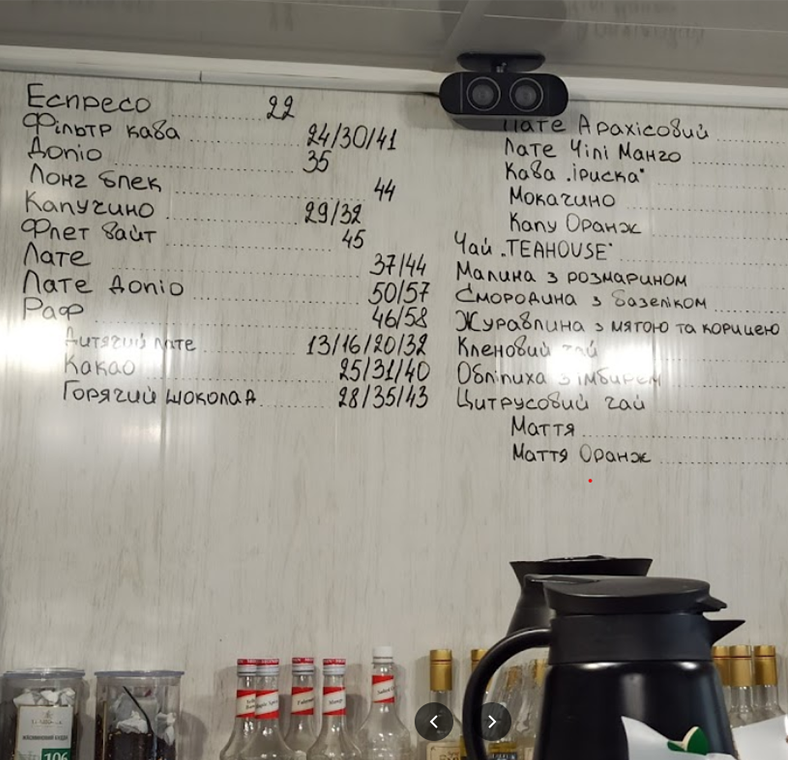 Еспресо 22
Фільтр кава 24/30/41
Допіо 35
Лонг блек 44
Капучино 29/32
Флет вайт 45
Лате 37/44
Лате Допіо 50/57
Раф 46/58
Дитячий лате 13/16/20/32
Какао 25/31/40
Горячий шоколад 28/35/43
Лате Арахісовий
Лате Чілі Манго
Кава „іриска"
Мокачино
Капу Оранж
Чай „TEAHOUSE"
Малина з розмарином
Смородина з базеліком
Журавлина з мятою та корицею
Кленовий чай
Обліпиха з імбирем
Цитрусовий чай
Маття
Маття Оранж
106